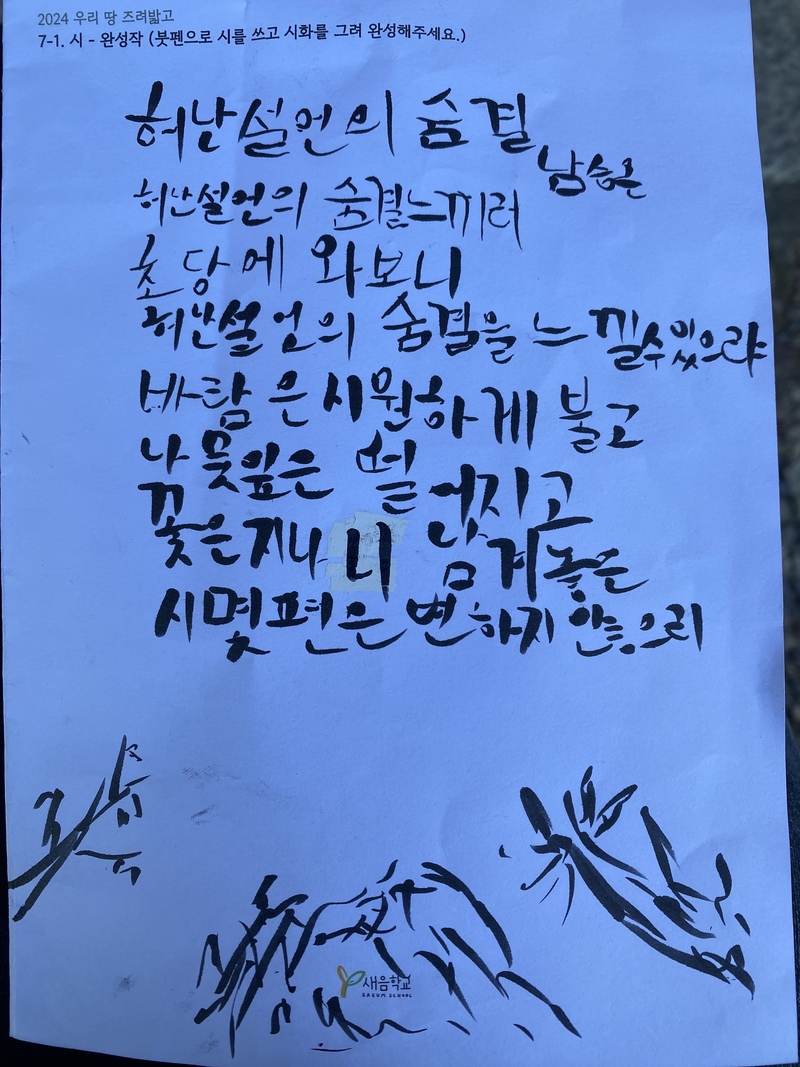 2024 우리 땅 즈려밟고
7-1. 시 - 완성작 (붓펜으로 시를 쓰고 시화를 그려 완성해주세요.)
허난설헌의 숨결
남승은
허난설헌의 숨결느끼려
초당에 와보니
허난설헌의 숨결을 느낄수있으랴
바람은 시원하게 불고
나뭇잎은 떨어지고
꽃은 지나니 남겨놓은
시몇편은 변하지 않으리
새음학교
SAEUM SCHOOL